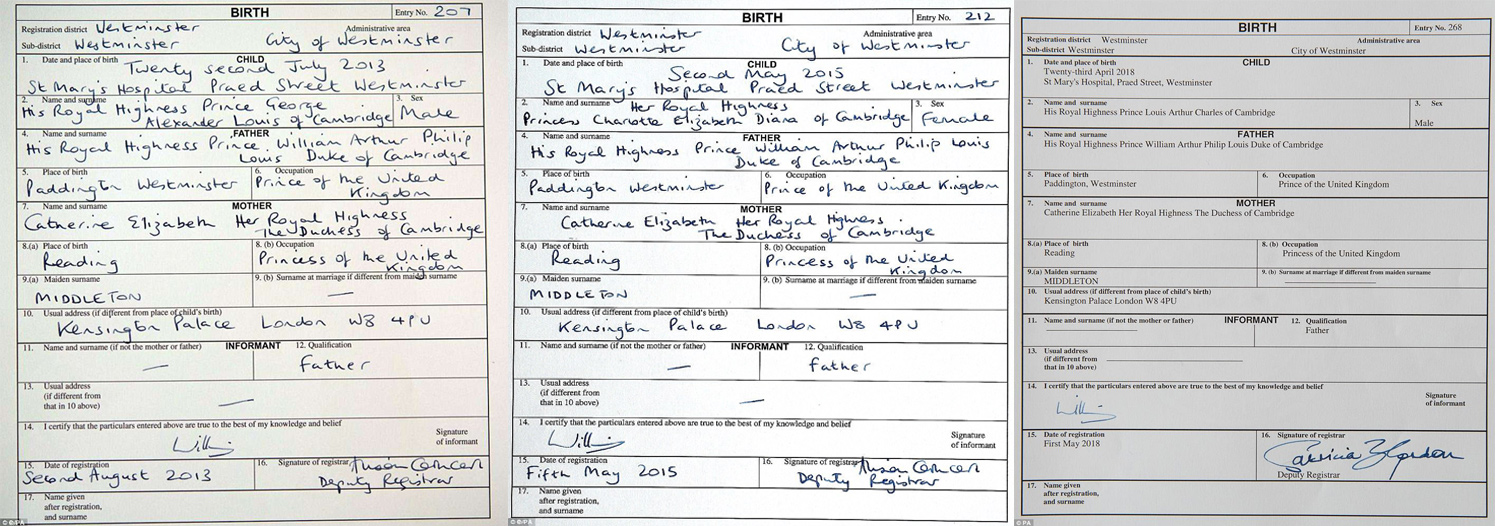 BIRTH
Entry No. 207
Registration district Westminster
Administrative area
Sub-district Westminster
City of Westminster
1. Date and place of birth
CHILD
Twenty second July 2013
St Mary's Hospital Praed Street Westminster
2. Name and surname
3. Sex
His Royal Highness Prince George
Alexander Louis of Cambridge
Male
4. Name and surname
FATHER
His Royal Highness Prince William Arthur Philip
Louis Duke of Cambridge
5. Place of birth
6. Occupation
Paddington Westminster
Prince of the United
Kingdom
7. Name and surname
MOTHER
Catherine Elizabeth Her Royal Highness
The Duchess of Cambridge
8.(a) Place of birth
8. (b) Occupation
Reading
Princess of the United
Kingdom
9.(a) Maiden surname
9. (b) Surname at marriage if different from maiden surname
MIDDLETON
—
10. Usual address (if different from place of child's birth)
Kensington Palace London W8 4PU
11. Name and surname (if not the mother or father)
INFORMANT
12. Qualification
—
Father
13. Usual address
(if different from
that in 10 above)
—
14. I certify that the particulars entered above are true to the best of my knowledge and belief
Signature
of informant
15. Date of registration
Second August 2013
16. Signature of registrar
Deputy Registrar
17. Name given
after registration,
and surname
© PA
BIRTH
Entry No. 212
Registration district Westminster
Administrative area
Sub-district Westminster
City of Westminster
1. Date and place of birth
CHILD
Second May 2015
St Mary's Hospital Praed Street Westminster
2. Name and surname
3. Sex
Her Royal Highness
Princess Charlotte Elizabeth Diana of Cambridge
Female
4. Name and surname
FATHER
His Royal Highness Prince William Arthur Philip Louis
Duke of Cambridge
5. Place of birth
6. Occupation
Paddington Westminster
Prince of the United Kingdom
7. Name and surname
MOTHER
Catherine Elizabeth Her Royal Highness
The Duchess of Cambridge
8.(a) Place of birth
8. (b) Occupation
Reading
Princess of the United
Kingdom
9.(a) Maiden surname
9. (b) Surname at marriage if different from maiden surname
MIDDLETON
—
10. Usual address (if different from place of child's birth)
Kensington Palace London W8 4PU
11. Name and surname (if not the mother or father)
INFORMANT
12. Qualification
—
Father
13. Usual address
(if different from
that in 10 above)
—
14. I certify that the particulars entered above are true to the best of my knowledge and belief
Signature
of informant
15. Date of registration
Fifth May 2015
16. Signature of registrar
Deputy Registrar
17. Name given
after registration,
and surname
© PA
BIRTH
Entry No. 268
Registration district Westminster
Administrative area
Sub-district Westminster
City of Westminster
1. Date and place of birth
CHILD
Twenty-third April 2018
St Mary's Hospital, Praed Street, Westminster
2. Name and surname
3. Sex
His Royal Highness Prince Louis Arthur Charles of Cambridge
Male
4. Name and surname
FATHER
His Royal Highness Prince William Arthur Philip Louis Duke of Cambridge
5. Place of birth
6. Occupation
Paddington, Westminster
Prince of the United Kingdom
7. Name and surname
MOTHER
Catherine Elizabeth Her Royal Highness The Duchess of Cambridge
8.(a) Place of birth
8. (b) Occupation
Reading
Princess of the United Kingdom
9.(a) Maiden surname
9. (b) Surname at marriage if different from maiden surname
MIDDLETON
10. Usual address (if different from place of child's birth)
Kensington Palace London W8 4PU
11. Name and surname (if not the mother or father)
INFORMANT
12. Qualification
Father
13. Usual address
(if different from
that in 10 above)
14. I certify that the particulars entered above are true to the best of my knowledge and belief
Signature
of informant
15. Date of registration
First May 2018
16. Signature of registrar
Deputy Registrar
17. Name given
after registration,
and surname
© PA